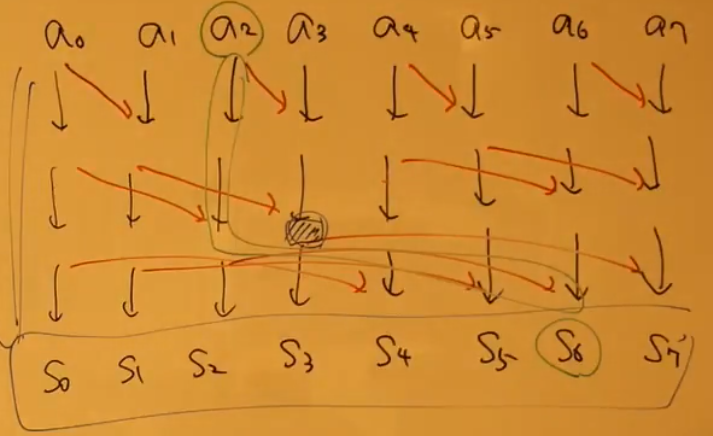 a₀ a₁ a₂ a₃ a₄ a₅ a₆ a₇
S₀ S₁ S₂ S₃ S₄ S₅ S₆ S₇